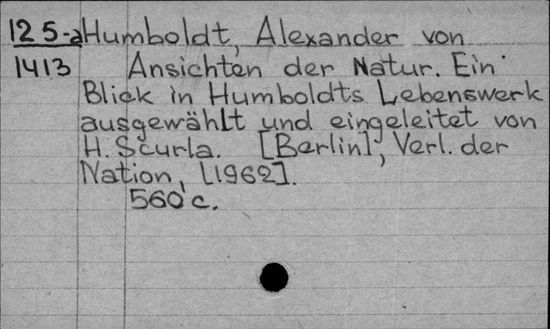 125-a Humboldt, Alexander von
1413 Ansichten der Natur. Ein
Blick in Humboldts Lebenswerk
ausgewählt und eingeleitet von
H. Scurla. [Berlin], Verl. der
Nation, [1962].
560 c.